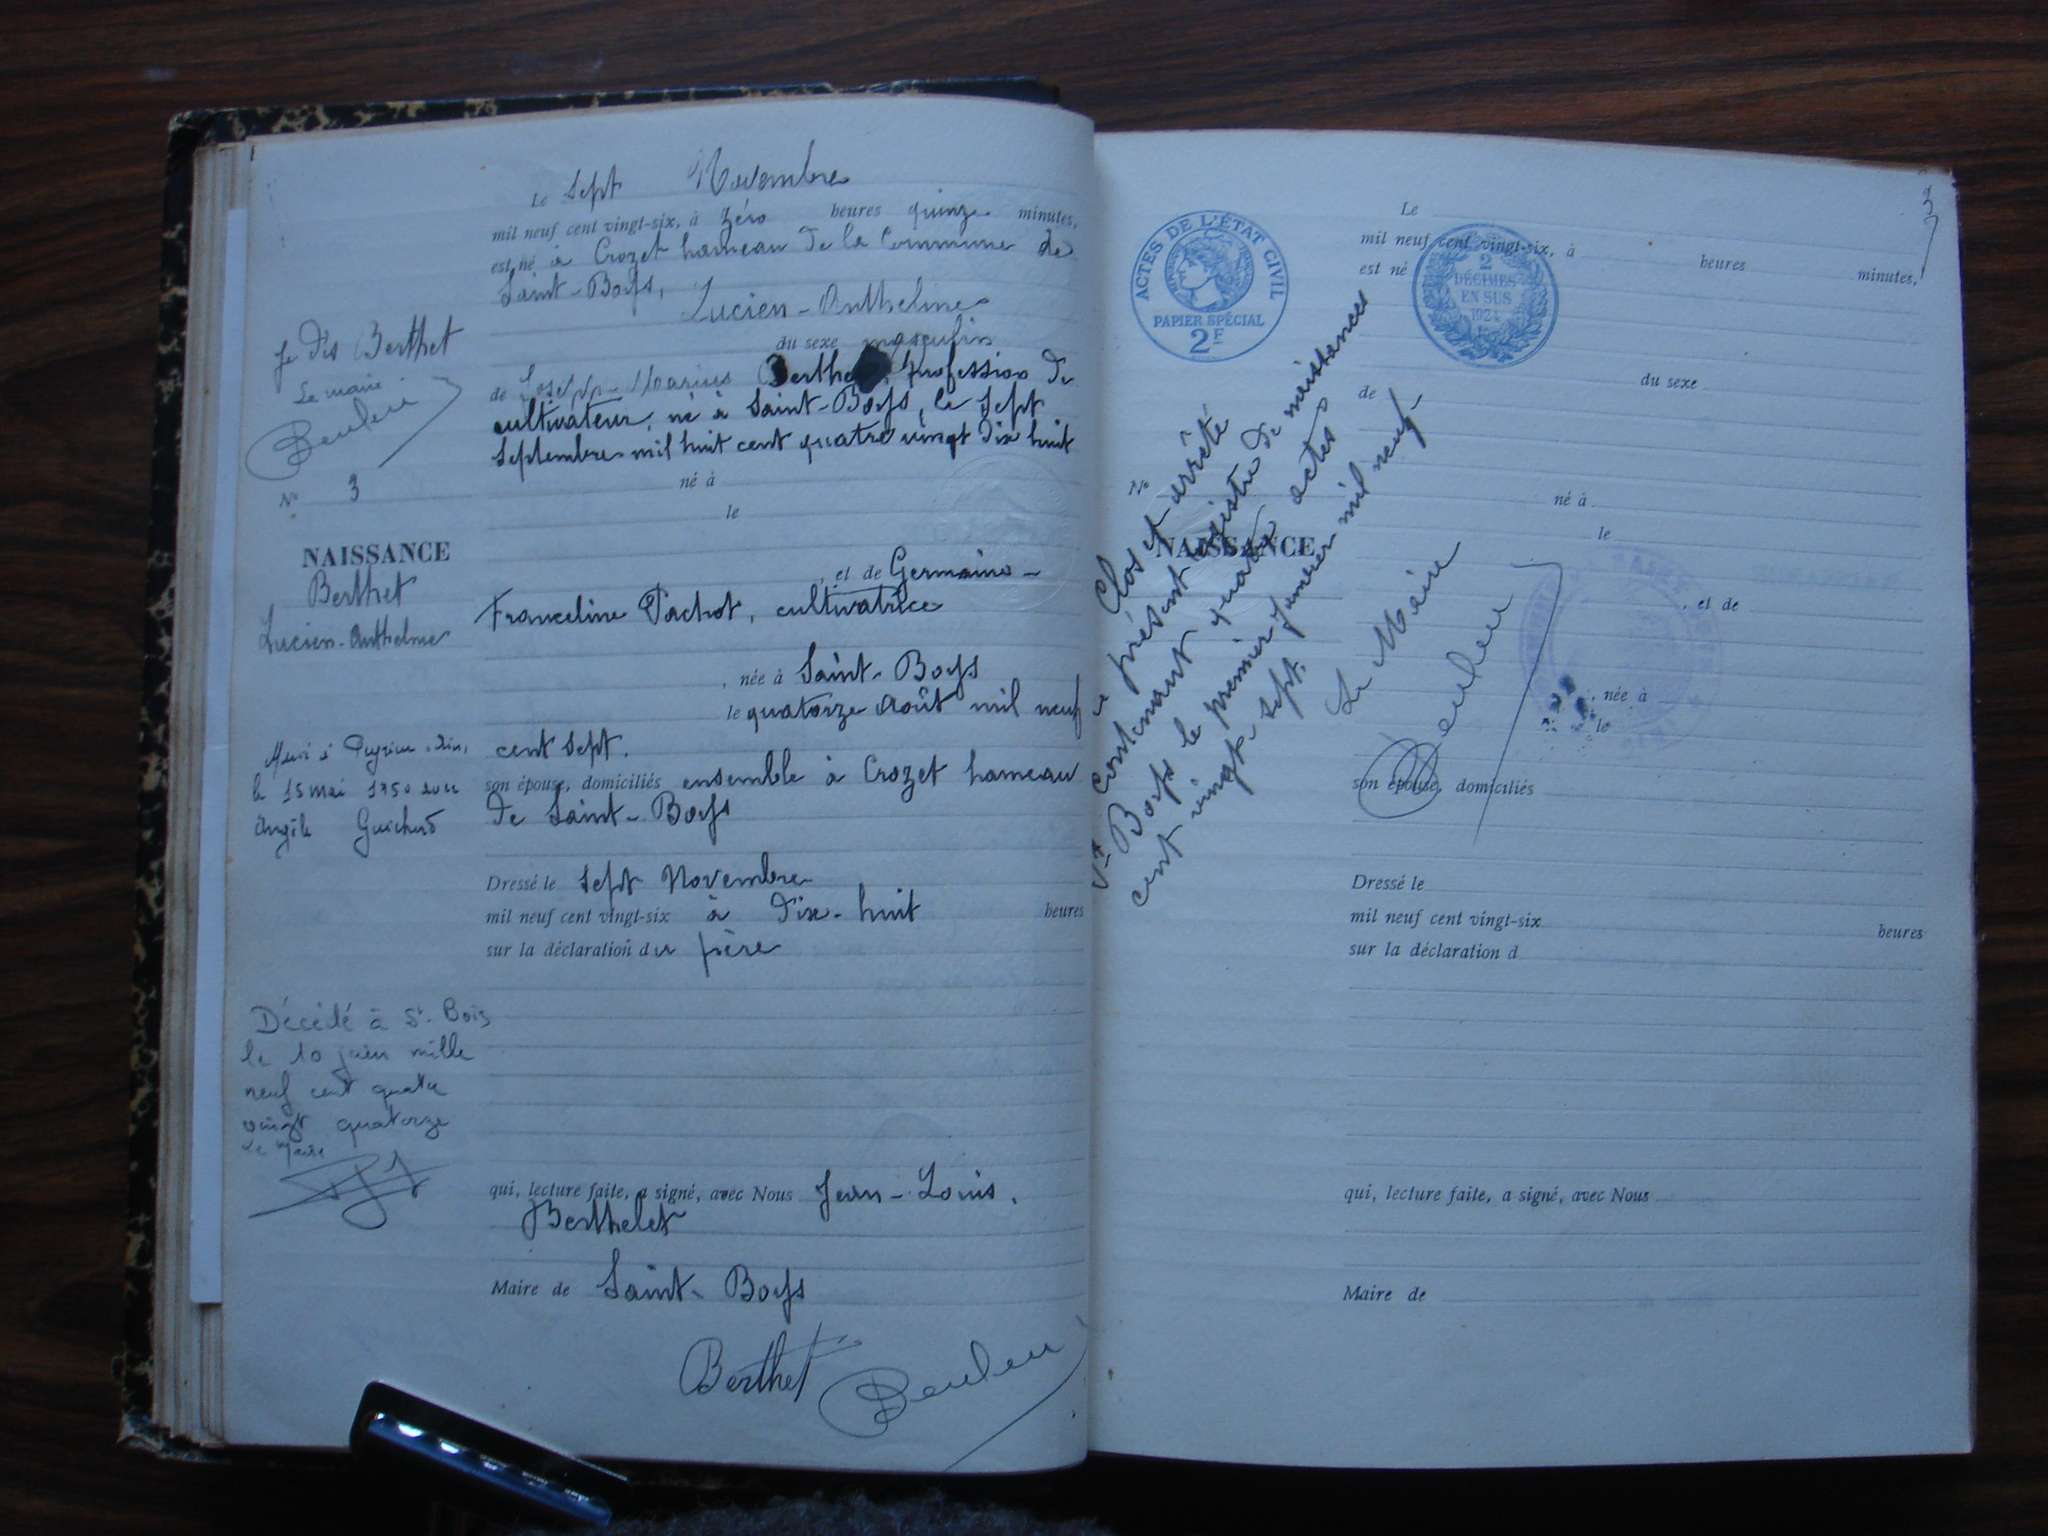 Le sept Novembre
mil neuf cent vingt-six, à zéro heures quinze minutes,
est né à Crozet hameau de la Commune de
Saint-Boys, Lucien-Anthelme
du sexe masculin
de Joseph-Marius Berthet, profession de
cultivateur, né à Saint-Boys, le sept
septembre mil huit cent quatre vingt dix huit
né à
le
, et de Germaine-
Franceline Pachot, cultivatrice
, née à Saint-Boys
le quatorze Août mil neuf
cent sept.
son épouse, domiciliés ensemble à Crozet hameau
de Saint-Boys
Dressé le sept Novembre
mil neuf cent vingt-six à dix-huit heures
sur la déclaration du père
qui, lecture faite, a signé, avec Nous Jean-Louis,
Berthelet
Maire de Saint-Boys
Berthet
Je dis Berthet
Le maire
No 3
NAISSANCE
Berthet
Lucien-Anthelme
Marié à Peyrieu, Ain,
le 15 mai 1950 avec
Angèle Guichard
Décédé à St. Bois
le 10 juin mille
neuf cent quatre
vingt quatorze
Le Maire
ACTES DE L'ÉTAT CIVIL
PAPIER SPÉCIAL
2F
2
DÉCIMES
EN SUS
1924
Le
mil neuf cent vingt-six, à heures minutes,
est né
du sexe
de
No
né à
le
NAISSANCE
, et de
, née à
le
son épouse, domiciliés
Dressé le
mil neuf cent vingt-six heures
sur la déclaration d
qui, lecture faite, a signé, avec Nous
Maire de
Clos et arrêté
le présent registre de naissances
contenant quatre actes
St Boys le premier janvier mil neuf-
cent vingt-sept.
Le Maire